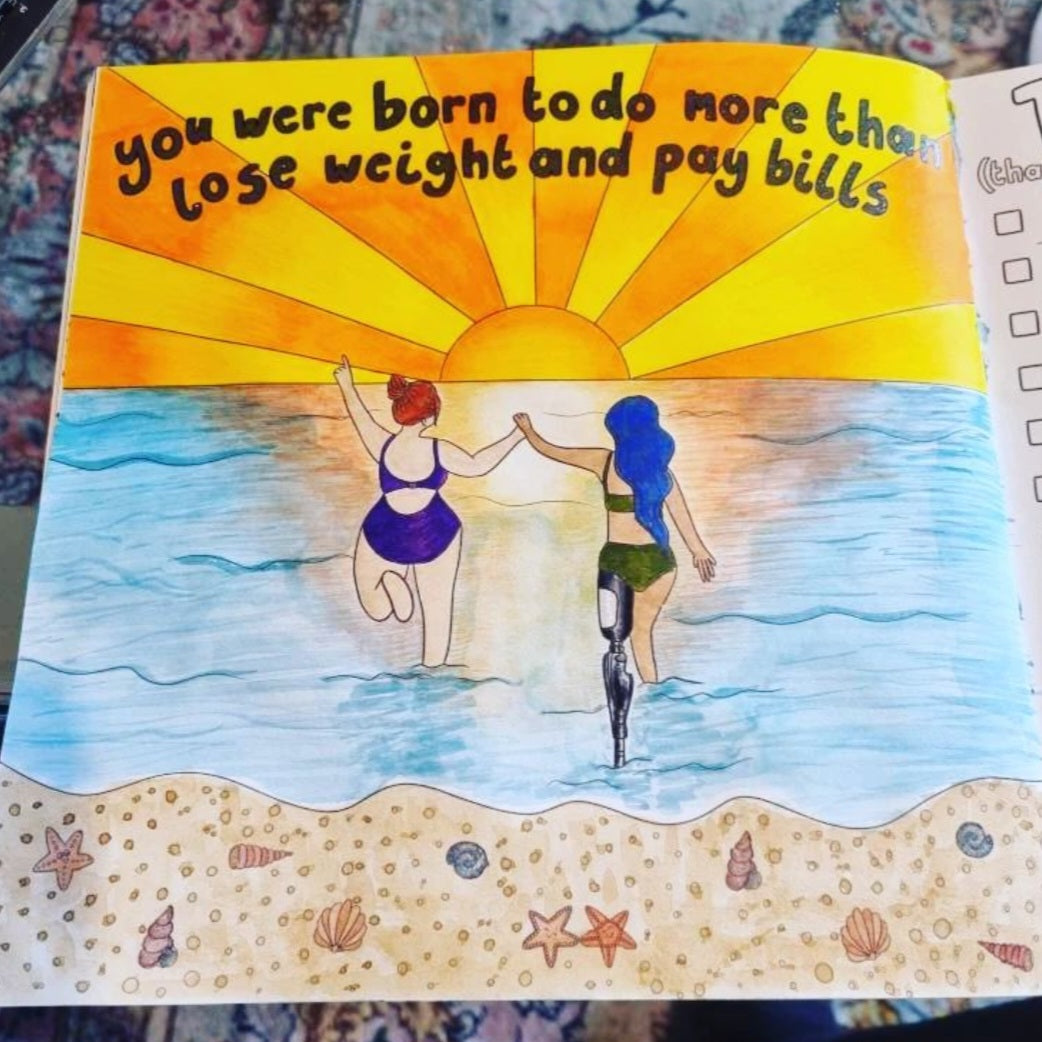 you were born to do more than
lose weight and pay bills
(tha